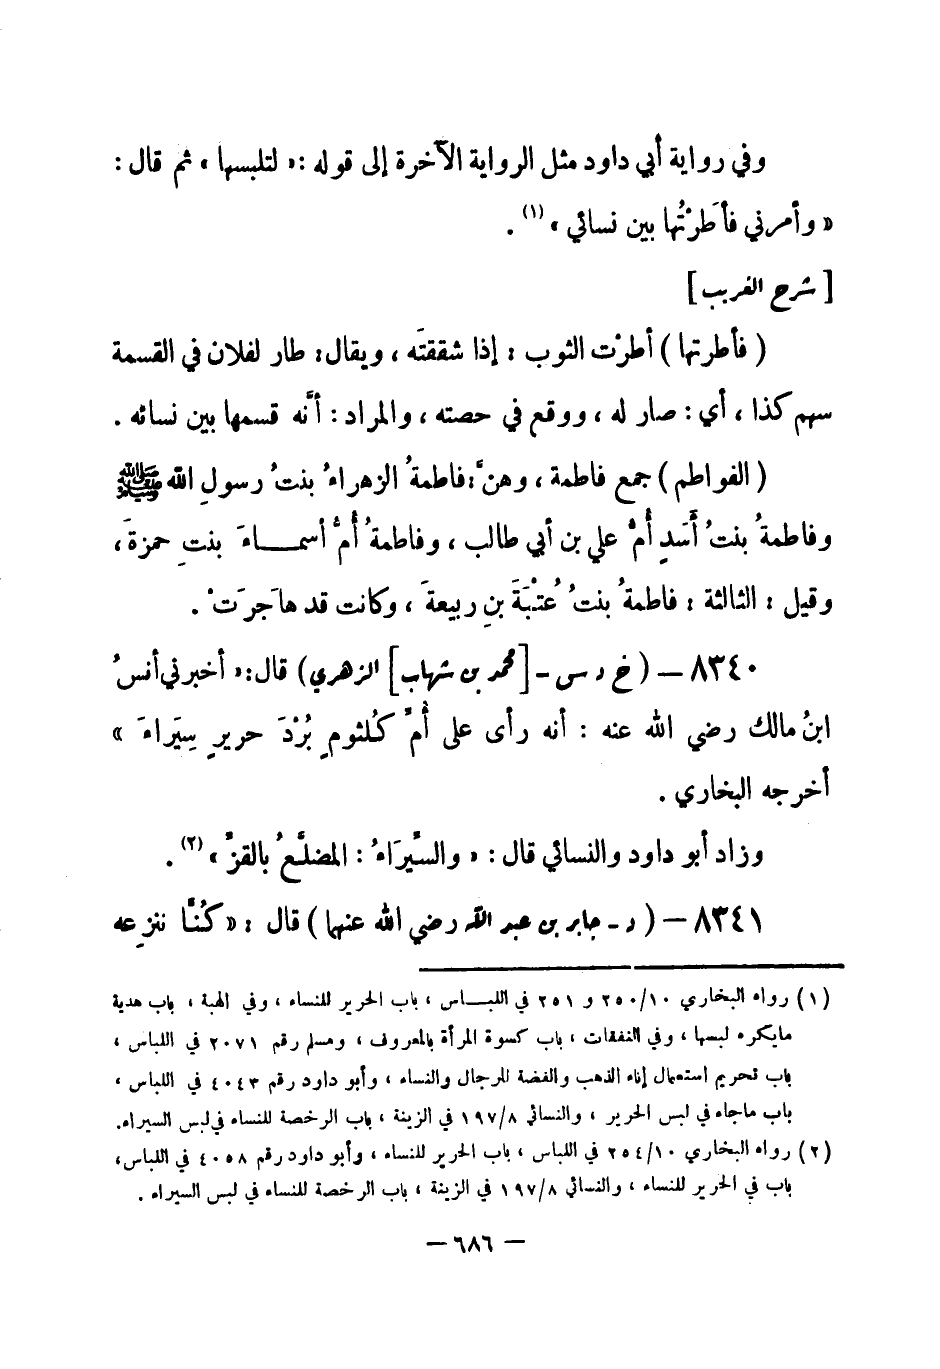 وفي رواية أبي داود مثل الرواية الآخرة إلى قوله : « لتلبسها » ثم قال :
« وأمرني فأَطَرْتُها بين نسائي » (١) .
[ شرح الغريب ]
( فأطرتها ) أطرْت الثوب : إذا شققتَه ، ويقال : طار لفلان في القسمة
سهم كذا ، أي : صار له ، ووقع في حصته ، والمراد : أنَّه قسمها بين نسائه .
( الفواطم ) جمع فاطمة ، وهنَّ : فاطمةُ الزهراءُ بنتُ رسولِ الله ﷺ
وفاطمةُ بنتُ أَسَدٍ أُمُّ علي بن أبي طالب ، وفاطمةُ أُمُّ أسمـاءَ بنتِ حمزةَ ،
وقيل : الثالثة : فاطمةُ بنتُ عُتْبَةَ بنِ ربيعةَ ، وكانت قد هاَجرَتْ .
٨٣٤٠ – ( خ د س - [ محمد بن شهاب ] الزهري ) قال : « أخبرني أنسُ
ابنُ مالك رضي الله عنه : أنه رأى على أُمِّ كُلثومٍ بُرْدَ حريرٍ سِيَراءَ »
أخرجه البخاري .
وزاد أبو داود والنسائي قال : « والسِّيَراءُ : المضلَّعُ بالقزِّ » (٢) .
٨٣٤١ – ( د - جابر بن عبد الله رضي الله عنهما ) قال : « كُنَّا ننزِعه
(١) رواه البخاري ٢٥٠/١٠ و ٢٥١ في اللبـاس ، باب الحرير للنساء ، وفي الهبة ، باب هدية
مايكره لبسها ، وفي النفقات ، باب كسوة المرأة بالمعروف ، ومسلم رقم ٢٠٧١ في اللباس ،
باب تحريم استعمال إناء الذهب والفضة للرجال والنساء ، وأبو داود رقم ٤٠٤٣ في اللباس ،
باب ماجاء في لبس الحرير ، والنسائي ١٩٧/٨ في الزينة ، باب الرخصة للنساء في لبس السيراء.
(٢) رواه البخاري ٢٥٤/١٠ في اللباس ، باب الحرير للنساء ، وأبو داود رقم ٤٠٥٨ في اللباس،
باب في الحرير للنساء ، والنسائي ١٩٧/٨ في الزينة ، باب الرخصة للنساء في لبس السيراء .
– ٦٨٦ –